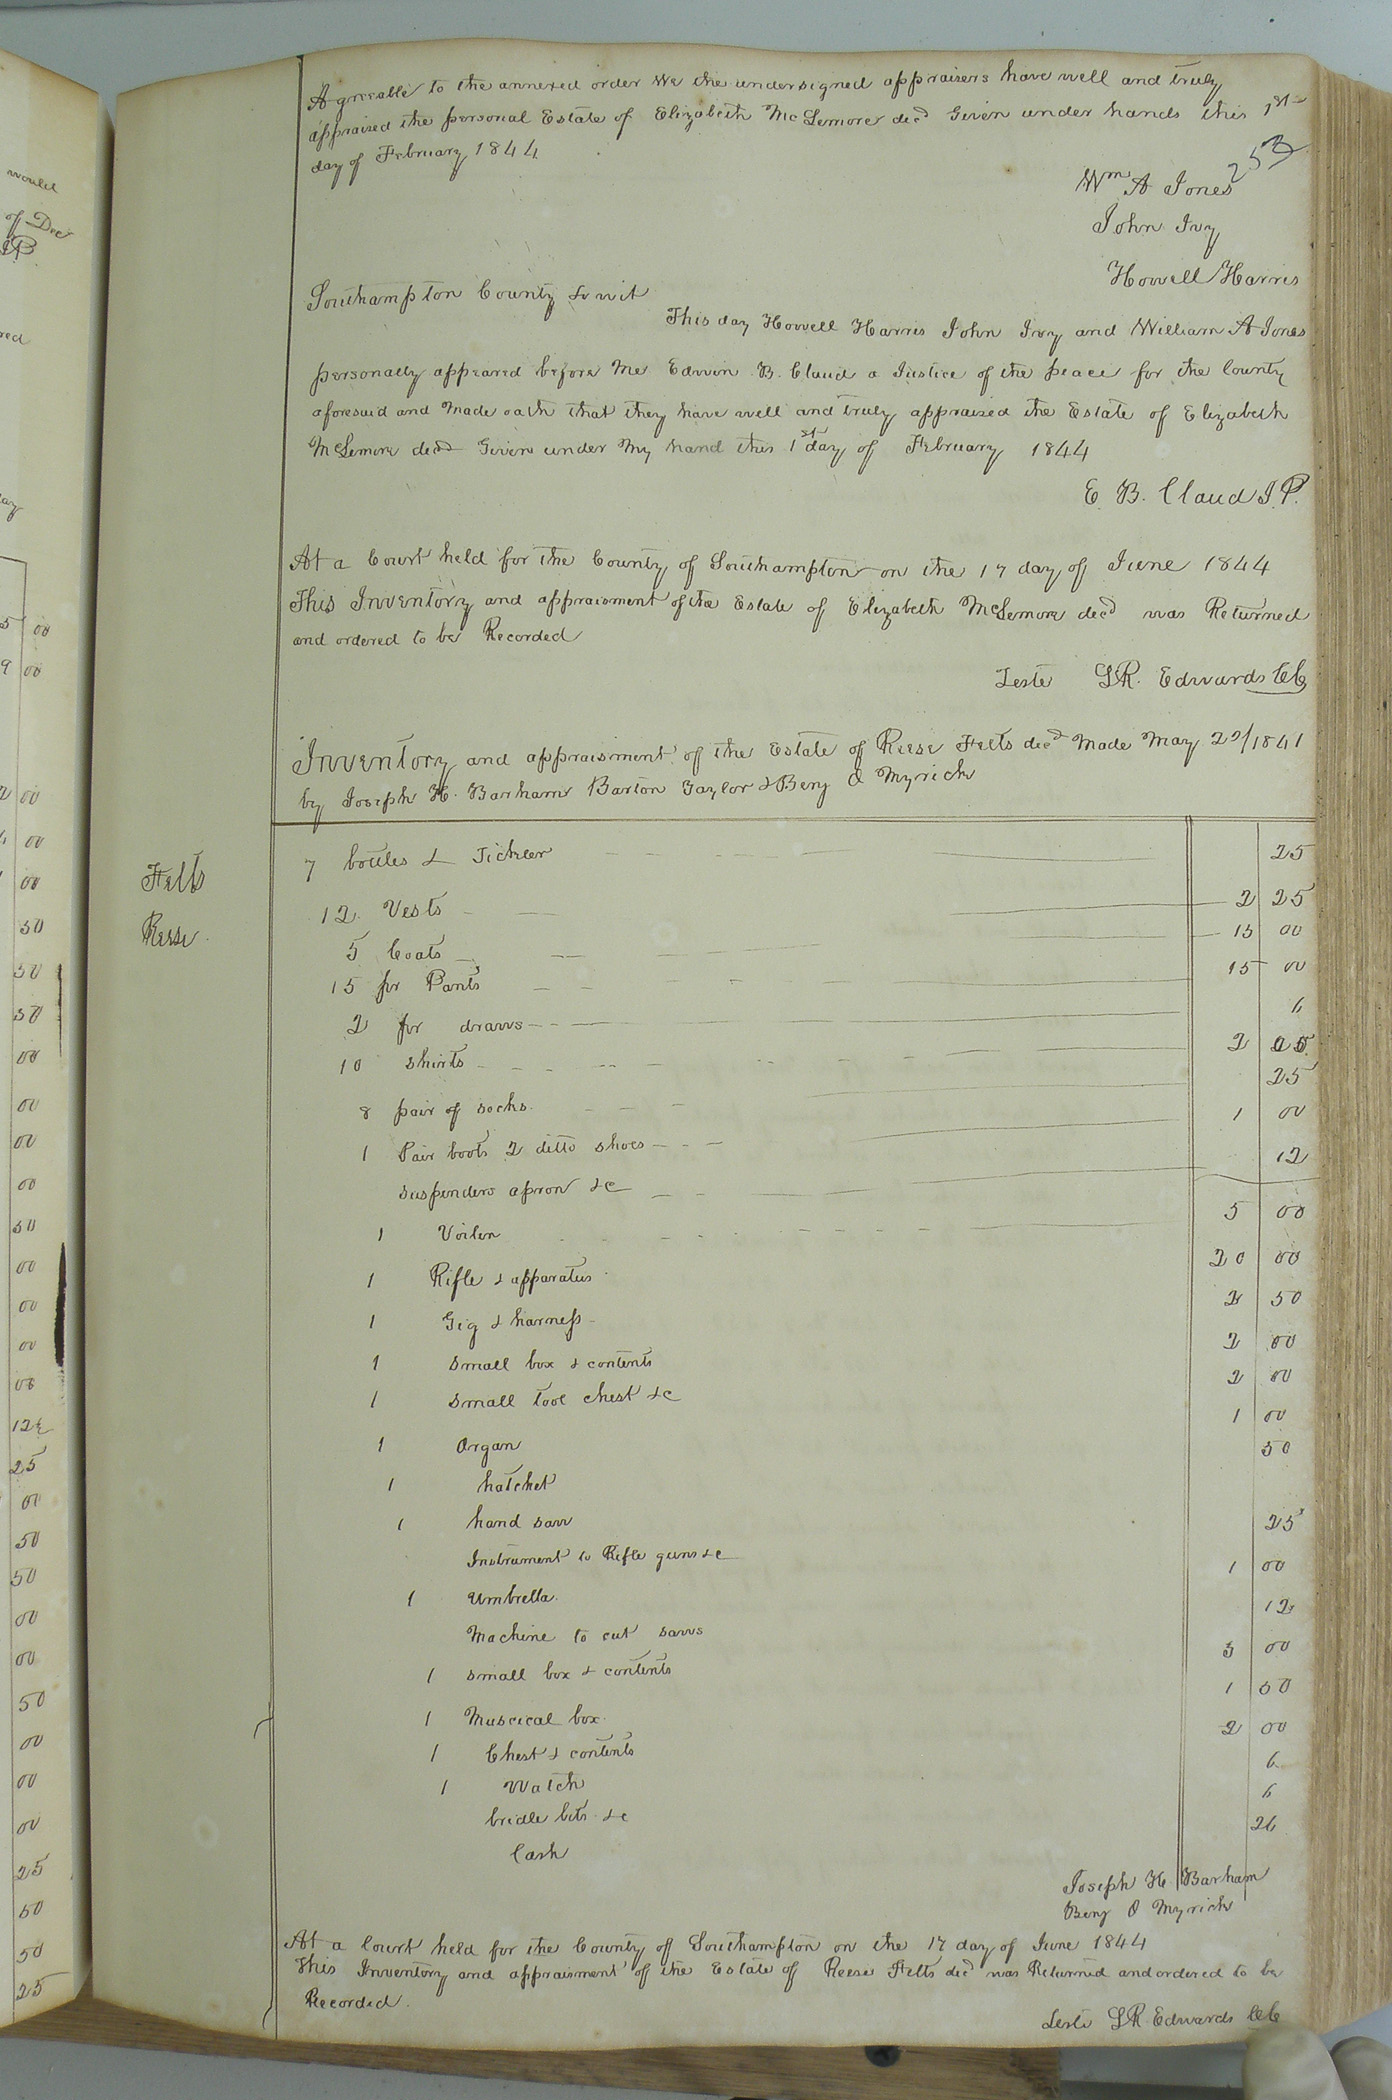 Agreeable to the annexed order We the undersigned appraisers have well and truly
appraised the personal Estate of Elizabeth McLemore decd Given under hands this 1st
day of February 1844
253
Wm A Jones
John Ivy
Howell Harris
Southampton County to wit
This day Howell Harris John Ivy and William A Jones
personally appeared before Me Edwin B. Claud a Justice of the peace for the County
aforesaid and Made oath that they have well and truly appraised the Estate of Elizabeth
McLemore decd Given under My hand this 1st day of February 1844
E. B. Claud J. P.
At a Court held for the County of Southampton on the 17 day of June 1844
This Inventory and appraisment of the Estate of Elizabeth McLemore decd was Returned
and ordered to be Recorded
Teste L R. Edwards CC
Inventory and appraisment of the Estate of Reese Felts decd Made May 22/1841
by Joseph H. Barham Barton Taylor & Benj O Myrick
Felts
Reese
7 bottles & Tickler 25
12 Vests 2 25
5 Coats 15 00
15 pr Pants 15 00
2 pr draws 6
10 shirts 2
8 pair of socks 25
1 Pair boots 2 ditto shoes 1 00
suspenders apron &c 12
1 Voilen 5 00
1 Rifle & apparatus 20 00
1 Gig & harness 2 50
1 small box & contents 2 00
1 small tool chest &c 2 00
1 Organ 1 00
1 hatchet 50
1 hand saw
Instrument to Rifle guns &c 25
1 Umbrella 1 00
Machine to cut saws 12
1 small box & contents 3 00
1 Muscical box 1 50
1 Chest & contents 2 00
1 Watch 6
bridle bits &c 6
Cash 26
Joseph H. Barham
Benj O Myrick
At a Court held for the County of Southampton on the 17 day of June 1844
This Inventory and appraisment of the Estate of Reese Felts decd was Returned and ordered to be
Recorded.
Teste L R Edwards CC